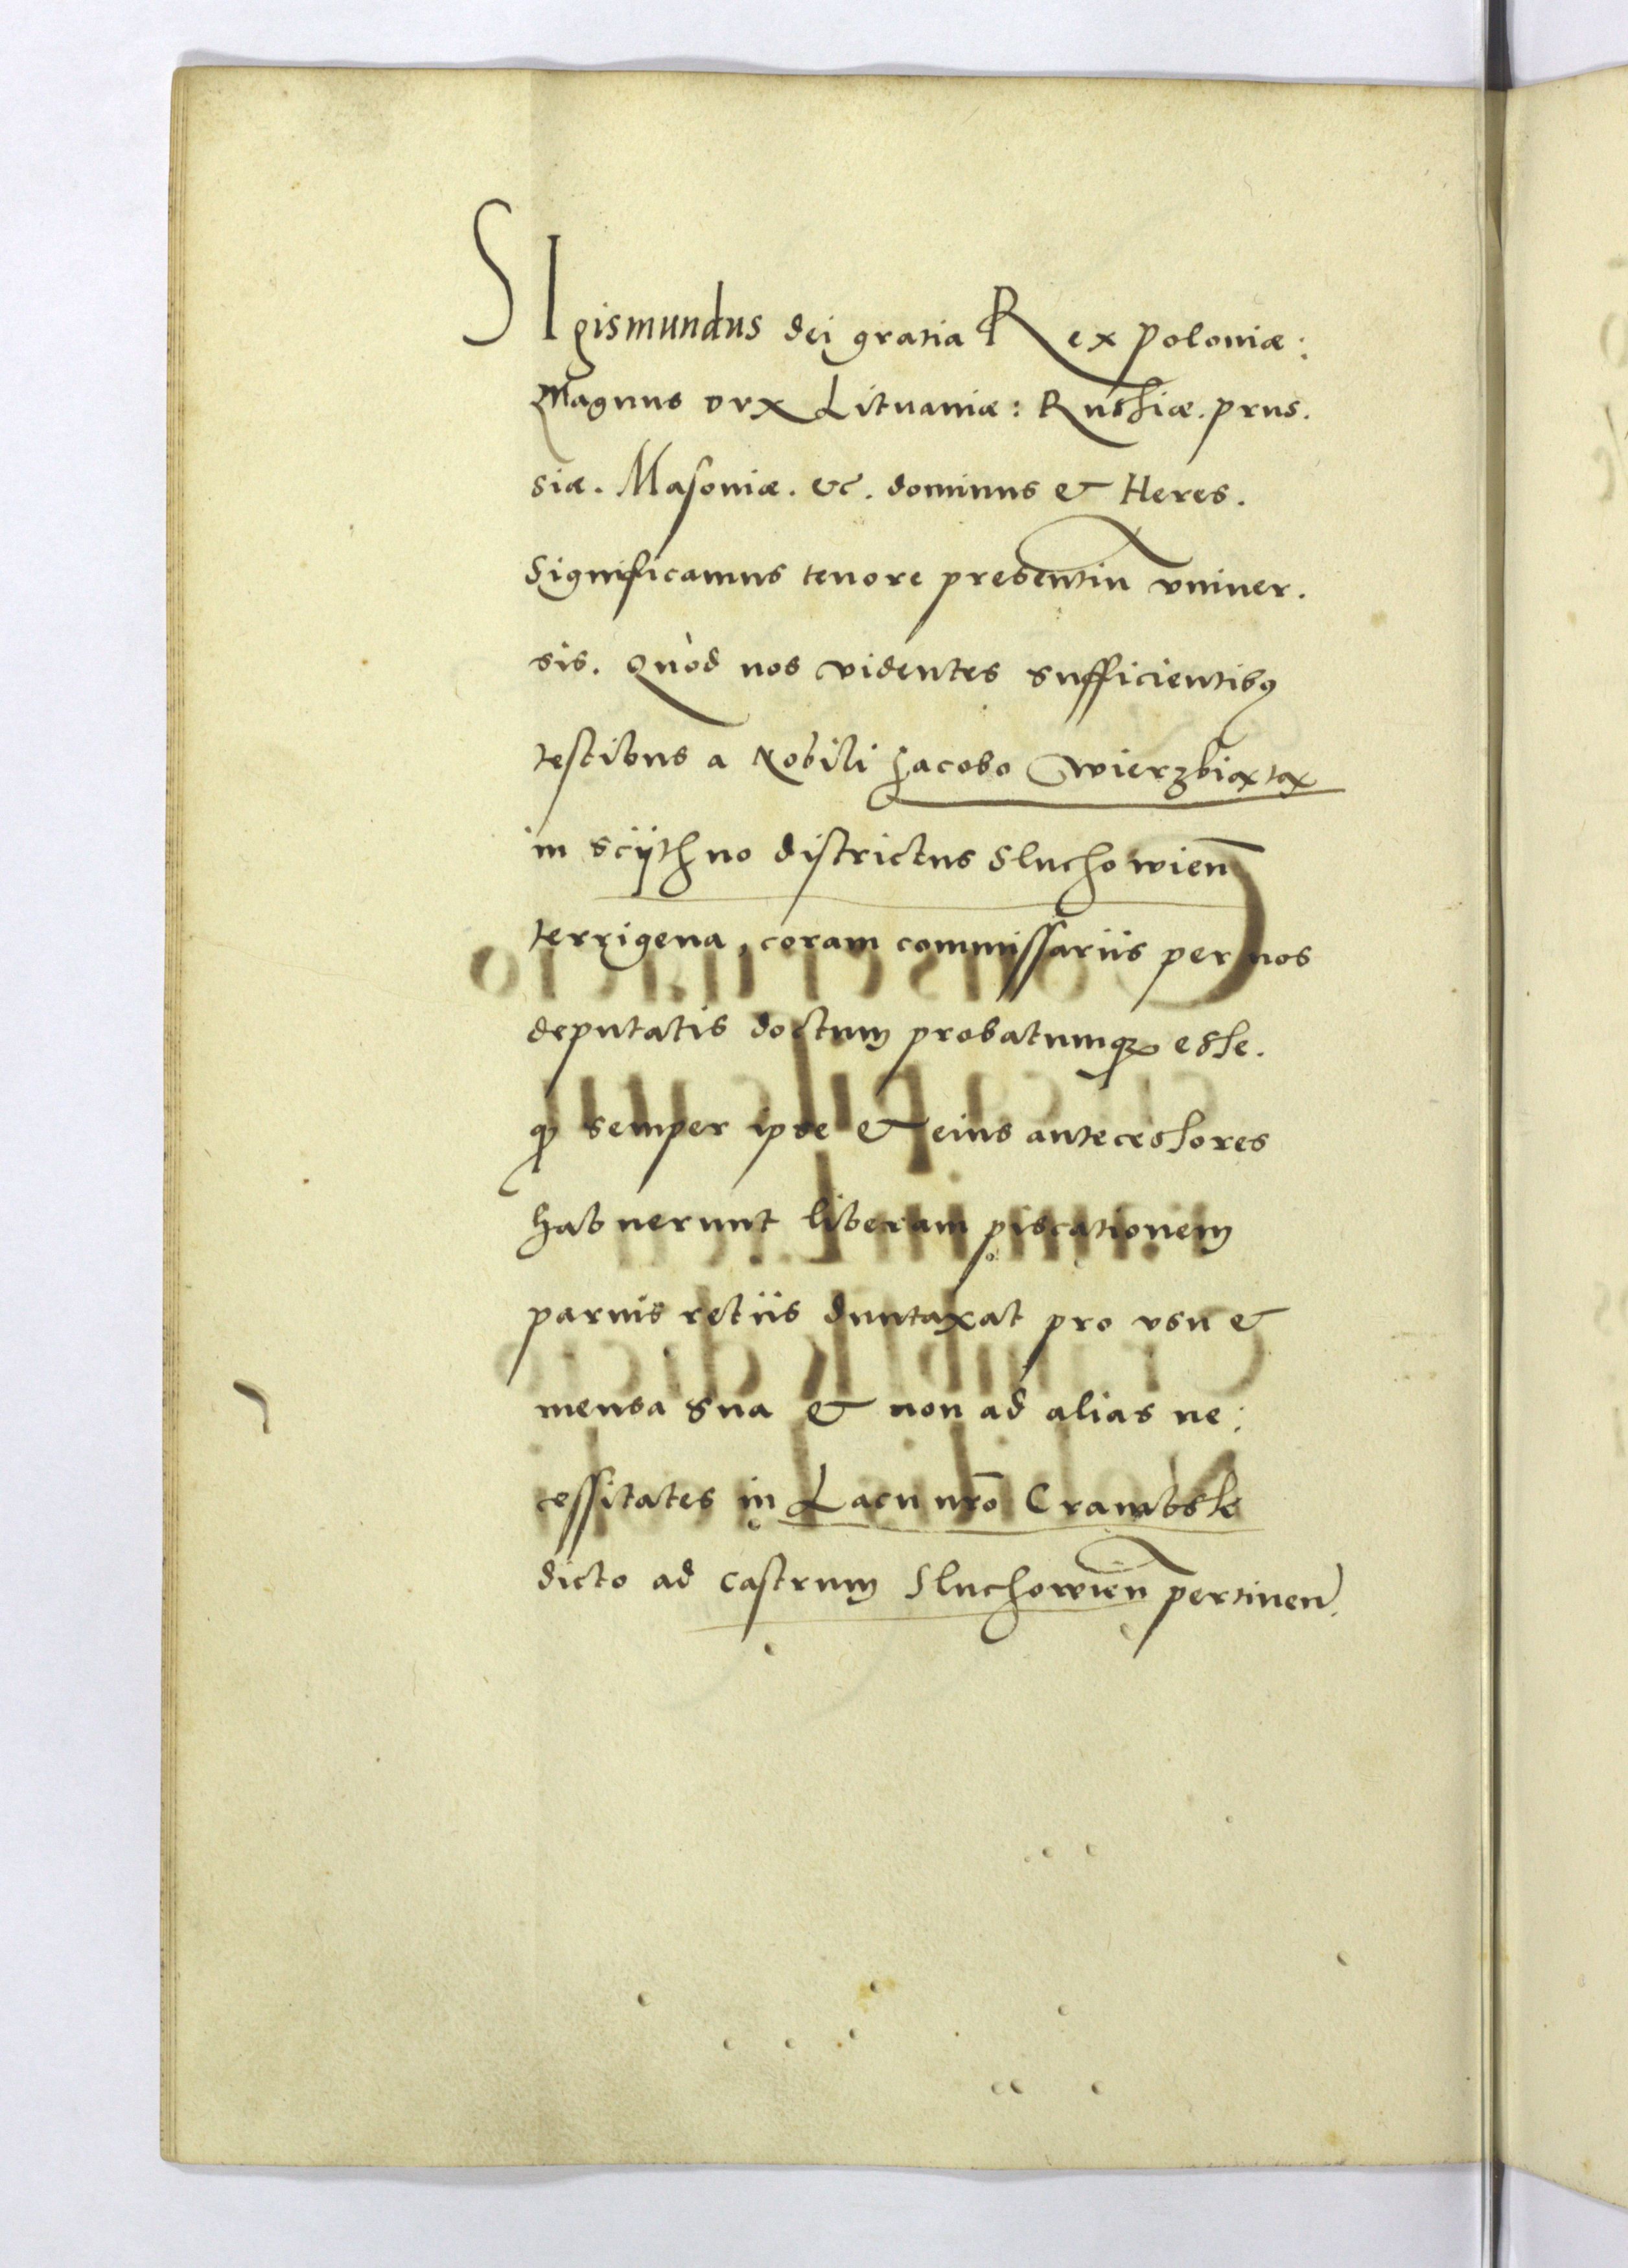 SIgismundus dei gratia Rex Poloniæ:
Magnus dux Lituaniæ: Russiæ. prus.
siæ. Masoniæ. &c. dominus & Heres.
Significamus tenore presentiū vniuer.
sis. Quòd nos videntes sufficientibꝰ
testibus a Nobili Jacobo Wierzbiąxtax
in scijthno districtus Sluchowień
terrigena, coram commissariis per nos
deputatis doctum probatumqꝫ esse.
ꝙ semper ipse & eius antecessores
habuerunt liberam piscationem
paruis retiis duntaxat pro vsu &
mensa sua & non ad alias ne:
cessitates in Lacu nr̄o Crampsk
dicto ad castrum Sluchowień pertineń.